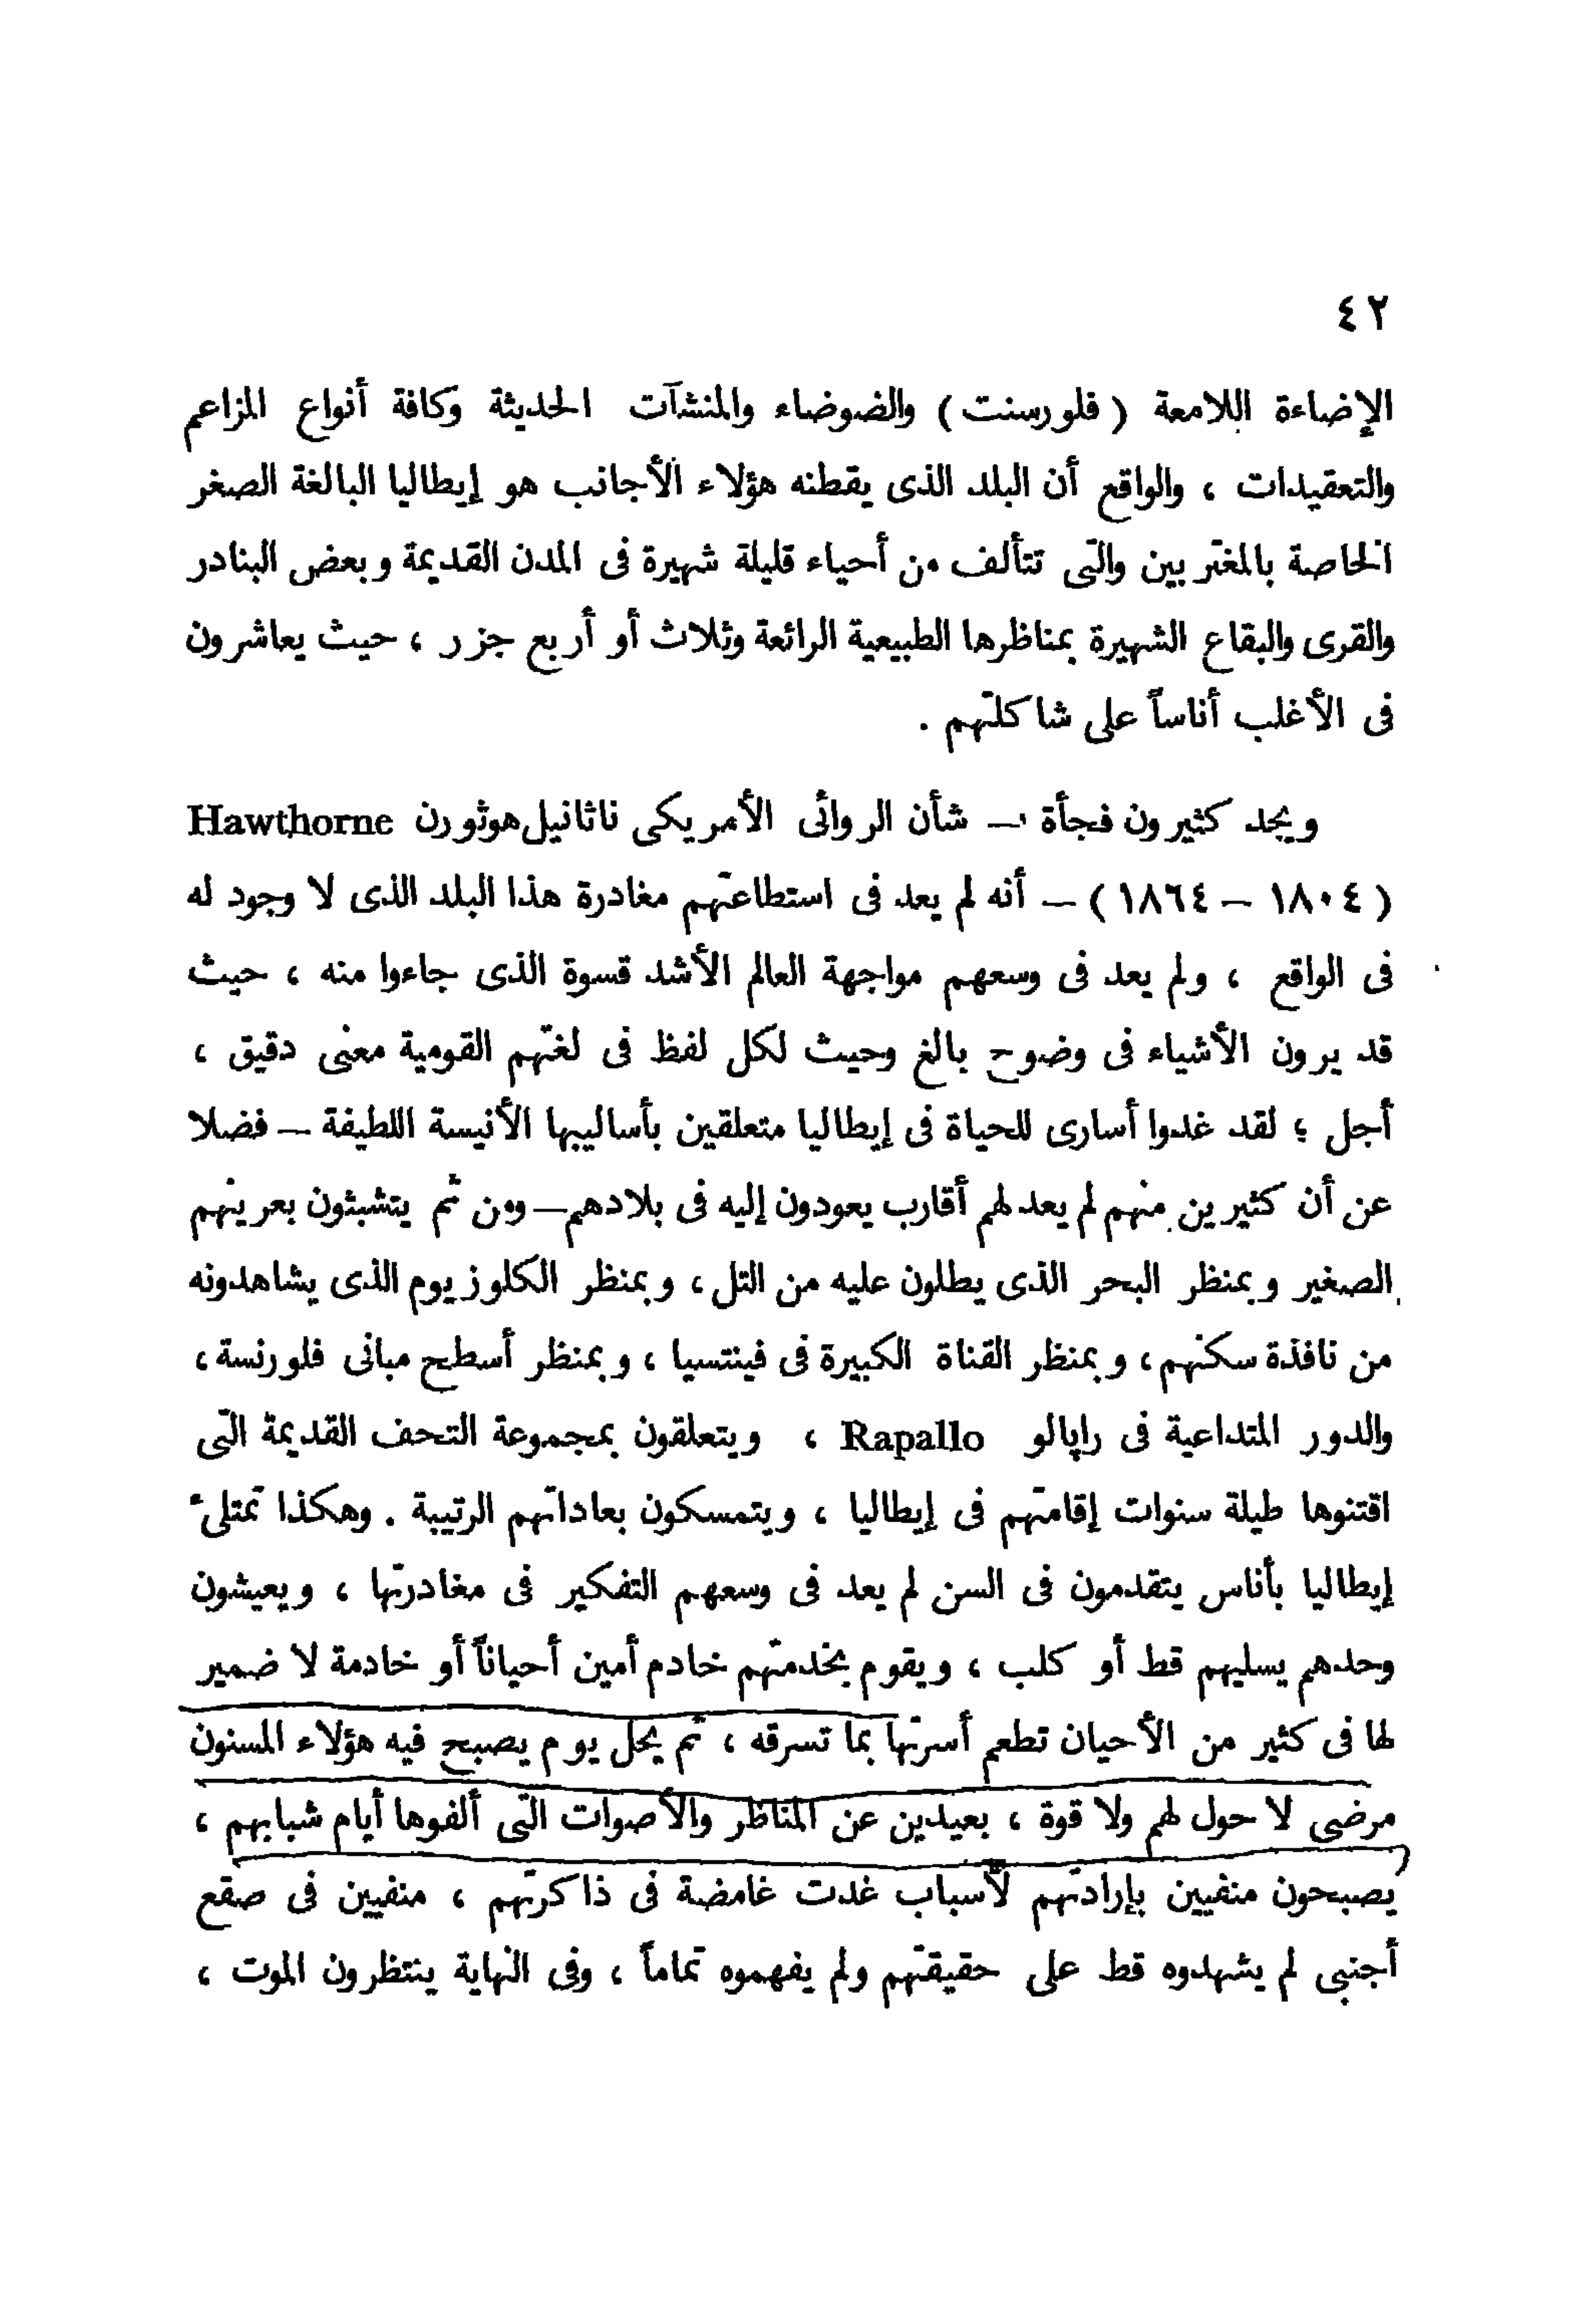 ٤٢
الإضاءة اللامعة ( فلورسنت ) والضوضاء والمنشآت الحديثة وكافة أنواع المزاعم
والتعقيدات ، والواقع أن البلد الذى يقطنه هؤلاء الأجانب هو إيطاليا البالغة الصغر
الخاصة بالمغتربين والتى تتألف من أحياء قليلة شهيرة فى المدن القديمة وبعض البنادر
والقرى والبقاع الشهيرة بمناظرها الطبيعية الرائعة وثلاث أو أربع جزر ، حيث يعاشرون
فى الأغلب أناساً على شاكلتهم .
ويجد كثيرون فجأة – شأن الروائى الأمريكى ناثانيل هوثورن Hawthorne
( ١٨٠٤ – ١٨٦٤ ) – أنه لم يعد فى استطاعتهم مغادرة هذا البلد الذى لا وجود له
فى الواقع ، ولم يعد فى وسعهم مواجهة العالم الأشد قسوة الذى جاءوا منه ، حيث
قد يرون الأشياء فى وضوح بالغ وحيث لكل لفظ فى لغتهم القومية معنى دقيق ،
أجل ؛ لقد غدوا أسارى للحياة فى إيطاليا متعلقين بأساليبها الأنيسة اللطيفة – فضلا
عن أن كثيرين منهم لم يعد لهم أقارب يعودون إليه فى بلادهم – ومن ثم يتشبثون بعرينهم
الصغير وبمنظر البحر الذى يطلون عليه من التل ، وبمنظر الكلوزيوم الذى يشاهدونه
من نافذة سكنهم ، وبمنظر القناة الكبيرة فى فينتسيا ، وبمنظر أسطح مبانى فلورنسة ،
والدور المتداعية فى راپالو Rapallo ، ويتعلقون بمجموعة التحف القديمة التى
اقتنوها طيلة سنوات إقامتهم فى إيطاليا ، ويتمسكون بعاداتهم الرتيبة . وهكذا تمتلىء
إيطاليا بأناس يتقدمون فى السن لم يعد فى وسعهم التفكير فى مغادرتها ، ويعيشون
وحدهم يسليهم قط أو كلب ، ويقوم بخدمتهم خادم أمين أحياناً أو خادمة لا ضمير
لها فى كثير من الأحيان تطعم أسرتها بما تسرقه ، ثم يحل يوم يصبح فيه هؤلاء المسنون
مرضى لا حول لهم ولا قوة ، بعيدين عن المناظر والأصوات التى ألفوها أيام شبابهم ،
يصبحون منفيين بإرادتهم لأسباب غدت غامضة فى ذاكرتهم ، منفيين فى صقع
أجنبى لم يشهدوه قط على حقيقتهم ولم يفهموه تماماً ، وفى النهاية ينتظرون الموت ،